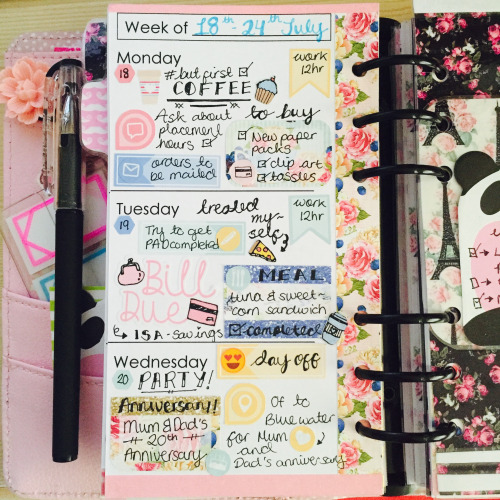 Week of 18th - 24th July
Monday
18
#but first
COFFEE
work
12hr
Ask about
placement
hours
to buy
New paper
packs
clip art
tassles
orders to
be mailed
Tuesday
19
treated
my-
self
work
12hr
Try to get
PAD completed
Bill
Due
ISA - savings
MEAL
tuna & sweet-
corn sandwich
completed
Wednesday
20
PARTY!
day off
Anniversary!
Mum & Dad's
20th
Anniversary
Of to
Bluewater
for Mum
and
Dad's anniversary